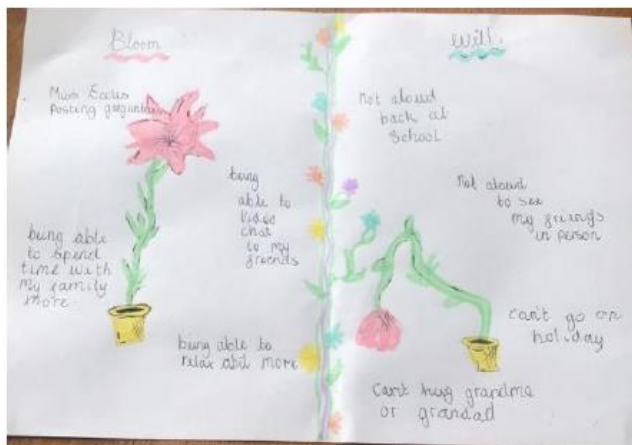 Bloom
Miss Eccles
Posting
being able
to spend
time with
my family
more.
being
able to
video
chat
to my
friends
being able to
relax abit more
Wilt
Not aloud
back at
School
Not aloud
to see
my friends
in person
can't go on
holiday
Can't hug grandma
or grandad